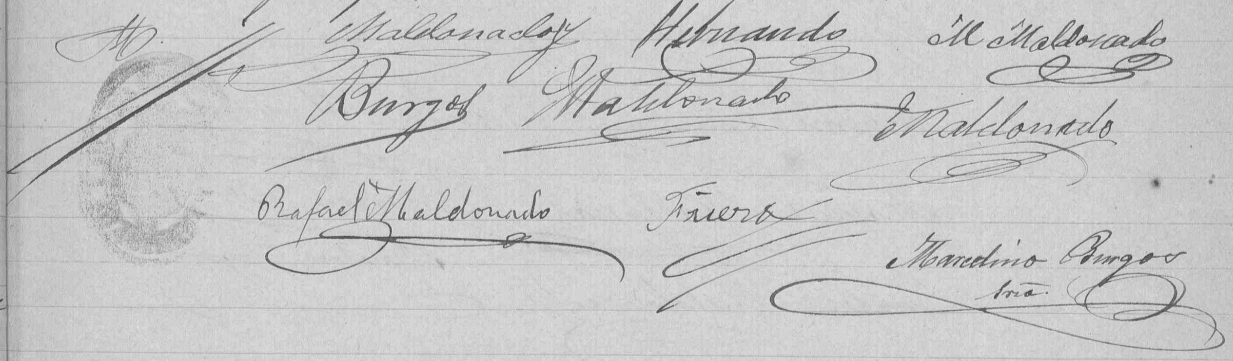 M. Maldonado y Hernando M Maldonado
Burgos Maldonado
Maldonado
Rafael Maldonado
Marcelino Burgos
Srio.